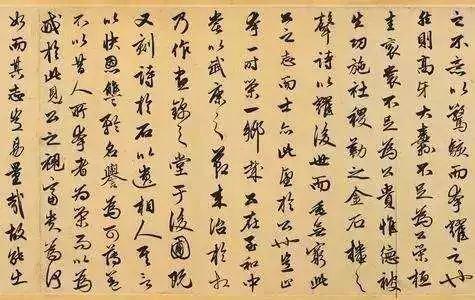 之不意以驚駭而夸耀之也
然則高牙大纛不足為公榮桓
圭袞裳不足為公貴惟德被
生功施社稷勒之金石播之
聲詩以耀後世而垂無窮此
公之志而士亦此望於公也豈止
夸一時榮一鄉哉公在至和中
嘗以武康之節來治於相
乃作晝錦之堂于後圃既
又刻詩於石以遺相人其言
以快恩讐矜名譽為可薄蓋
不以昔人所夸者為榮而以為
戒於此見公之視富貴為何
如而其志豈易量哉故能出